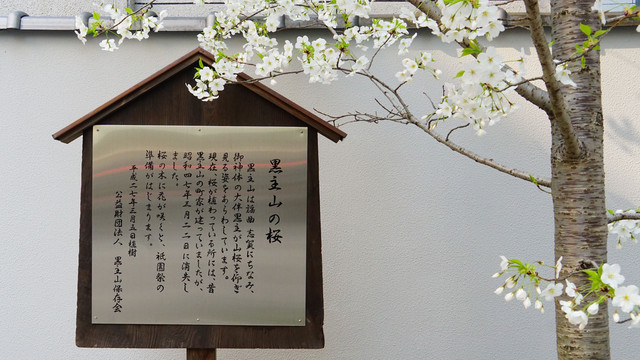 黒主山の桜
黒主山は謡曲 志賀にちなみ、
御神体の大伴黒主が山桜を仰ぎ
見る姿をあらわしています。
現在、桜が植わっている所には、昔
黒主山の町家が建っていましたが、
昭和四七年三月二二日に消失し
ました。
桜の木に花が咲くと、祇園祭の
準備がはじまります。
平成二七年三月五日植樹
公益財団法人 黒主山保存会